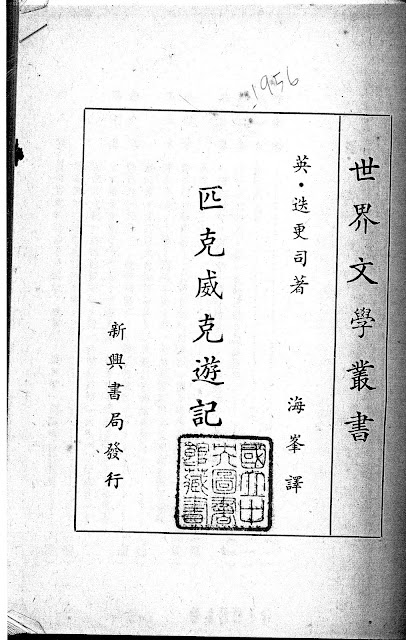 1956
世界文學叢書
英・迭更司著
海峯譯
匹克威克遊記
新興書局發行
國立中
央圖書
館藏書